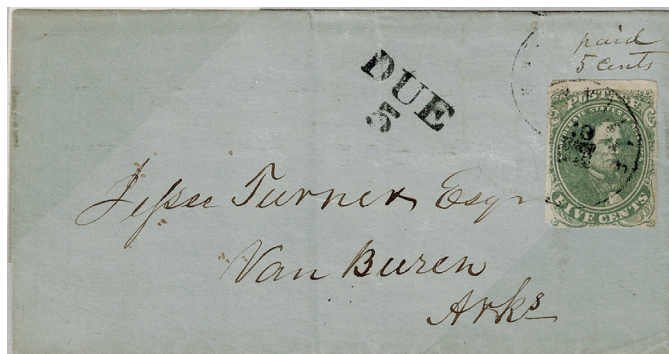 paid
5 cents
DUE
5
FIVE CENTS
Jesse Turner Esqr
Van Buren
Arks